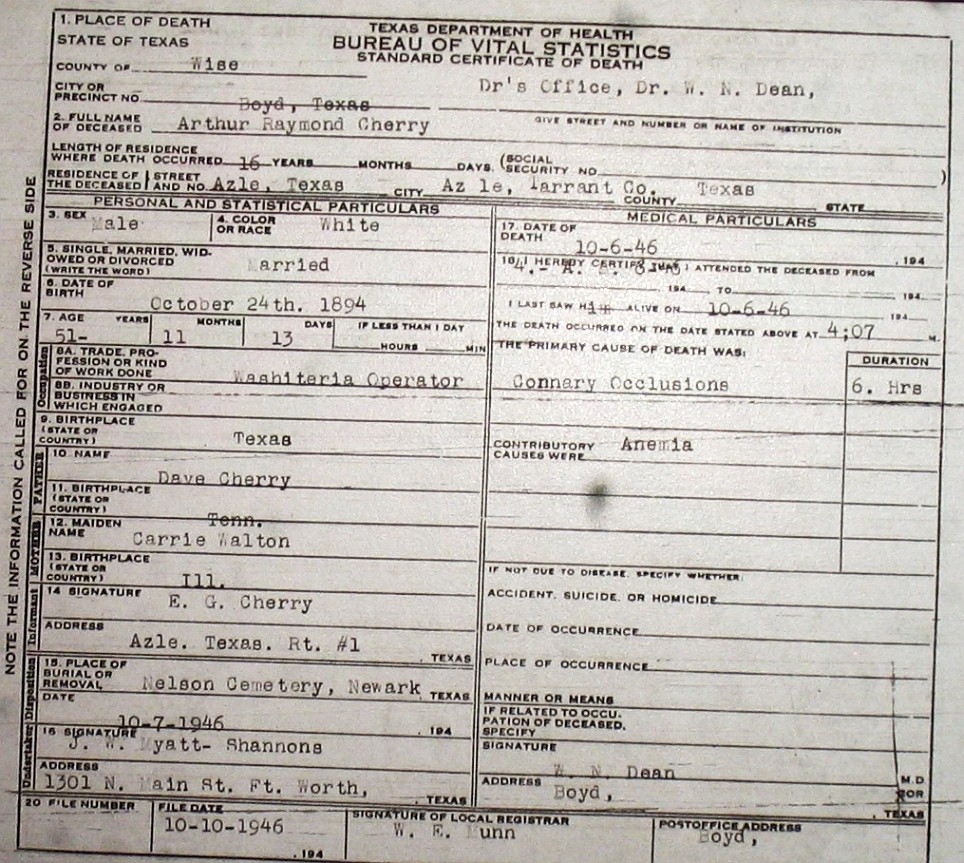 1. PLACE OF DEATH
STATE OF TEXAS
TEXAS DEPARTMENT OF HEALTH
BUREAU OF VITAL STATISTICS
STANDARD CERTIFICATE OF DEATH
COUNTY OF Wise
CITY OR PRECINCT NO. Boyd, Texas
Dr's Office, Dr. W. N. Dean,
GIVE STREET AND NUMBER OR NAME OF INSTITUTION
2. FULL NAME OF DECEASED Arthur Raymond Cherry
LENGTH OF RESIDENCE
WHERE DEATH OCCURRED 16 YEARS MONTHS DAYS. (SOCIAL SECURITY NO. )
RESIDENCE OF THE DECEASED STREET AND NO. Azle, Texas CITY Az le, Tarrant Co. COUNTY Texas STATE
PERSONAL AND STATISTICAL PARTICULARS
3. SEX Male
4. COLOR OR RACE White
5. SINGLE, MARRIED, WIDOWED OR DIVORCED
(WRITE THE WORD) arried
6. DATE OF BIRTH October 24th. 1894
7. AGE YEARS MONTHS DAYS IF LESS THAN 1 DAY
51- 11 13 HOURS MIN
Occupation
8A. TRADE, PROFESSION OR KIND OF WORK DONE Washiteria Operator
8B. INDUSTRY OR BUSINESS IN WHICH ENGAGED
9. BIRTHPLACE
(STATE OR COUNTRY) Texas
FATHER
10 NAME Dave Cherry
11. BIRTHPLACE
(STATE OR COUNTRY) Tenn.
MOTHER
12. MAIDEN NAME Carrie Walton
13. BIRTHPLACE
(STATE OR COUNTRY) Ill.
Informant
14 SIGNATURE E. G. Cherry
ADDRESS Azle. Texas. Rt. #1 , TEXAS
Disposition
15. PLACE OF BURIAL OR REMOVAL Nelson Cemetery, Newark , TEXAS
DATE 10-7-1946 , 194
Undertaker
16 SIGNATURE J. W. yatt- Shannons
ADDRESS 1301 N. ain St. Ft. Worth, , TEXAS
MEDICAL PARTICULARS
17. DATE OF DEATH 10-6-46 , 194
I HEREBY CERTIFY I ATTENDED THE DECEASED FROM
194 TO 194
I LAST SAW Him ALIVE ON 10-6-46 194
THE DEATH OCCURRED ON THE DATE STATED ABOVE AT 4;07 M.
THE PRIMARY CAUSE OF DEATH WAS: DURATION
Connary Occlusions 6. Hrs
CONTRIBUTORY CAUSES WERE Anemia
IF NOT DUE TO DISEASE, SPECIFY WHETHER:
ACCIDENT, SUICIDE, OR HOMICIDE
DATE OF OCCURRENCE
PLACE OF OCCURRENCE
MANNER OR MEANS
IF RELATED TO OCCUPATION OF DECEASED, SPECIFY
SIGNATURE W. N. Dean M.D
ADDRESS Boyd, , TEXAS
20 FILE NUMBER
FILE DATE 10-10-1946 , 194
SIGNATURE OF LOCAL REGISTRAR W. E. unn
POSTOFFICE ADDRESS Boyd,
NOTE THE INFORMATION CALLED FOR ON THE REVERSE SIDE